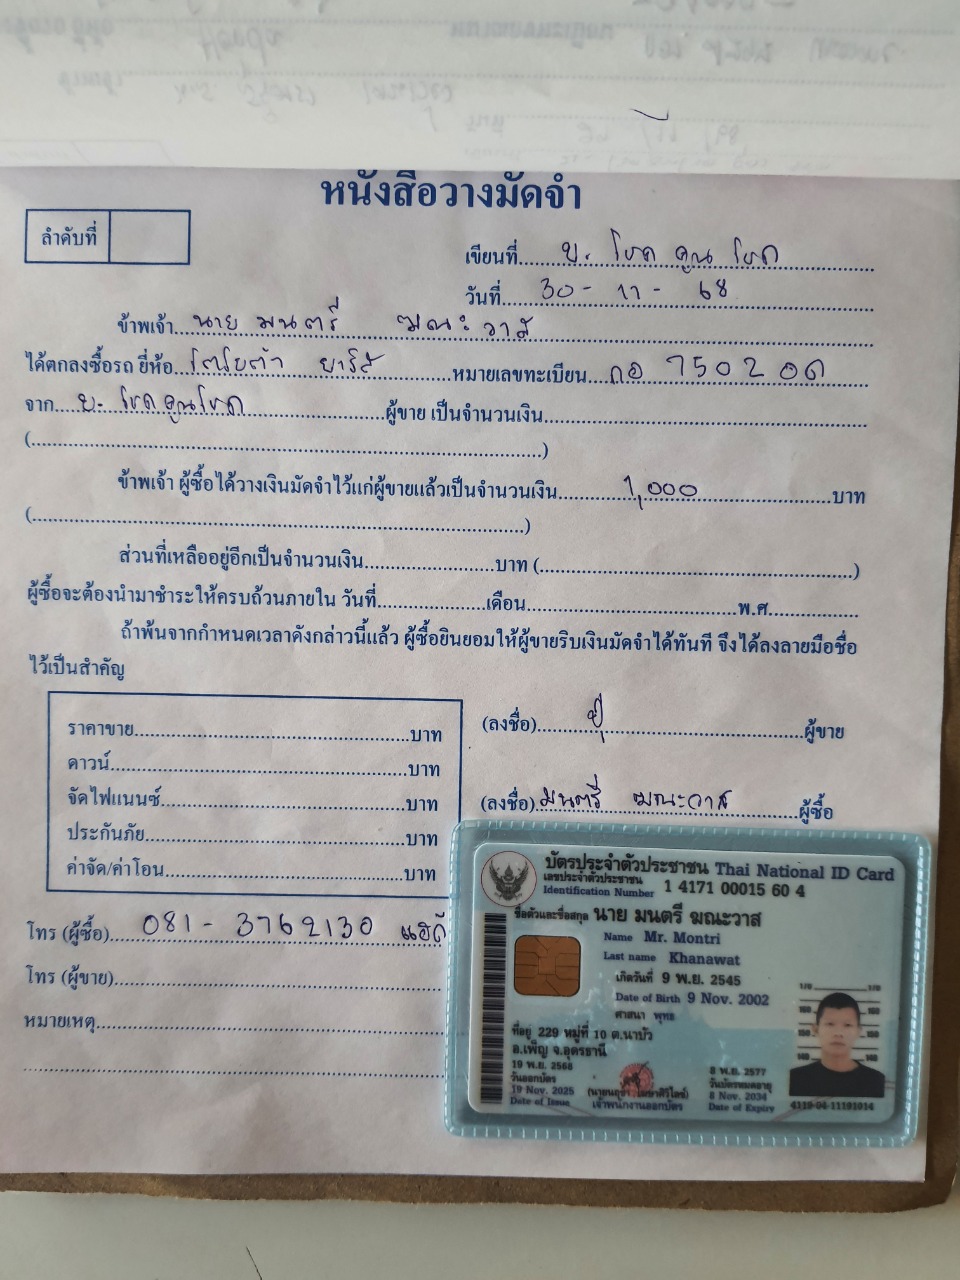 หนังสือวางมัดจำ
ลำดับที่
เขียนที่ บ. โชค คูณ โชค
วันที่ 30 - 11 - 68
ข้าพเจ้า นาย มนตรี ฆณะวาส
ได้ตกลงซื้อรถ ยี่ห้อ โตโยต้า ยาริส หมายเลขทะเบียน กอ 7502 อด
จาก บ. โชคคูณโชค ผู้ขาย เป็นจำนวนเงิน
( )
ข้าพเจ้า ผู้ซื้อได้วางเงินมัดจำไว้แก่ผู้ขายแล้วเป็นจำนวนเงิน 1,000 บาท
( )
ส่วนที่เหลืออยู่อีกเป็นจำนวนเงิน บาท ( )
ผู้ซื้อจะต้องนำมาชำระให้ครบถ้วนภายใน วันที่ เดือน พ.ศ.
ถ้าพ้นจากกำหนดเวลาดังกล่าวนี้แล้ว ผู้ซื้อยินยอมให้ผู้ขายริบเงินมัดจำได้ทันที จึงได้ลงลายมือชื่อ
ไว้เป็นสำคัญ
ราคาขาย บาท
ดาวน์ บาท
จัดไฟแนนซ์ บาท
ประกันภัย บาท
ค่าจัด/ค่าโอน บาท
(ลงชื่อ) ผู้ขาย
(ลงชื่อ) มนตรี ฆณะวาส ผู้ซื้อ
โทร (ผู้ซื้อ) 081 - 3762130
โทร (ผู้ขาย)
หมายเหตุ
บัตรประจำตัวประชาชน Thai National ID Card
เลขประจำตัวประชาชน
Identification Number 1 4171 00015 60 4
ชื่อตัวและชื่อสกุล นาย มนตรี ฆณะวาส
Name Mr. Montri
Last name Khanawat
เกิดวันที่ 9 พ.ย. 2545
Date of Birth 9 Nov. 2002
ศาสนา พุทธ
ที่อยู่ 229 หมู่ที่ 10 ต.นาบัว
อ.เพ็ญ จ.อุดรธานี
19 พ.ย. 2568
วันออกบัตร
19 Nov. 2025
Date of Issue
เจ้าพนักงานออกบัตร
8 พ.ย. 2577
วันบัตรหมดอายุ
8 Nov. 2034
Date of Expiry
4119-04-11191014